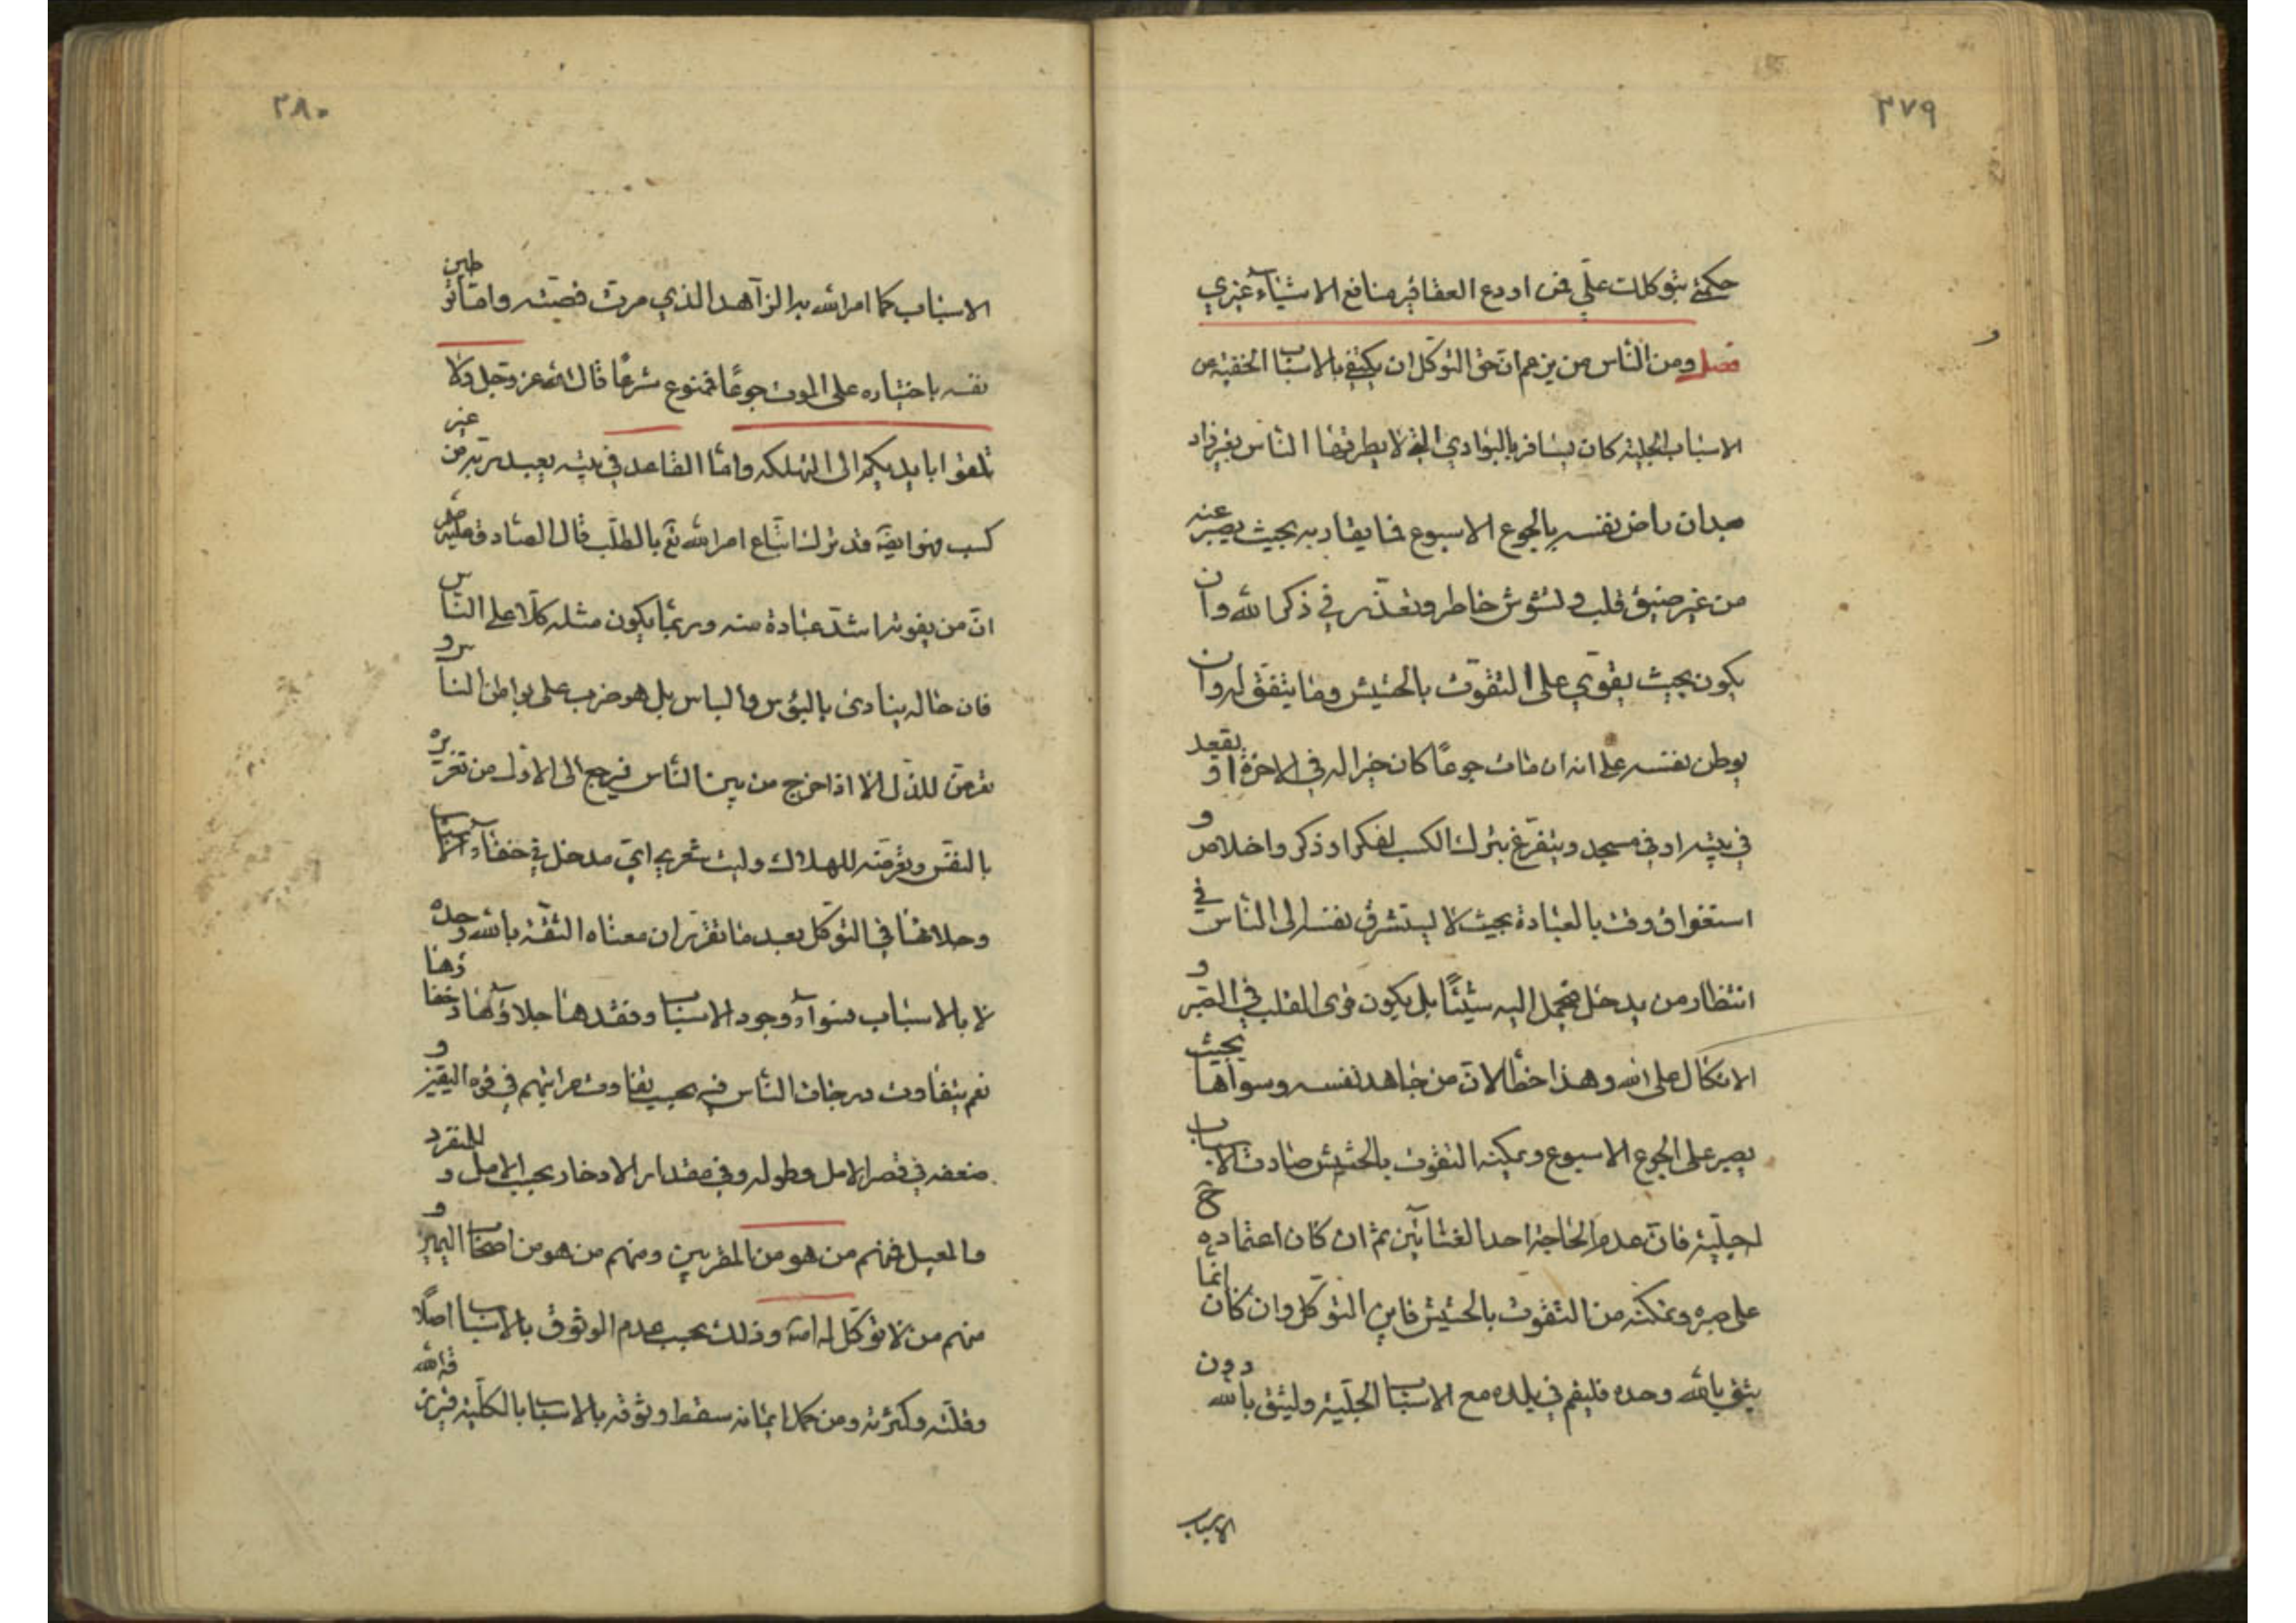 ٣٧٩
حكمتي بتوكلك علي فمن اودع العقاقير منافع الاشياء غيري
فصل ومن الناس من يزعم ان حق التوكل ان يكتفي بالاسباب الخفية عن
الاسباب الجلية كان يسافر بالبوادي التي لا يطرقها الناس بغير زاد
بعد ان راض نفسه بالجوع الاسبوع فما يقاربه بحيث يصبر عنه
من غير ضيق قلب وتشوش خاطر وتعذر في ذكر الله وان
يكون بحيث يقوي على التقوت بالحشيش وما يتفق له وان
يوطن نفسه على انه ان مات جوعًا كان خيرا له في الاخرة او يقعد
في بيته او في مسجد ويتفرغ بترك الكسب لفكر او ذكر واخلاص و
استغراق وقت بالعبادة بحيث لا يستشرف نفسه الى الناس في
انتظار من يدخل فيحمل اليه شيئًا بل يكون قوى القلب في الصبر و
الاتكال على الله وهذا خطأ لان من جاهد نفسه وسواها بحيث
يصبر على الجوع الاسبوع ويمكنه التقوت بالحشيش صارت الاسباب
اجلية فان عدم الحاجة احد الغنائين ثم ان كان اعتماده ح
على صبره وتمكنه من التقوت بالحشيش فاين التوكل وان كان انما
يثق بالله وحده فليقم في بلده مع الاسباب الجلية وليثق بالله دون
الاسباب
٣٨٠
الاسباب كما امر الله به الزاهد الذي مرت قصته واما توطين
نفسه باختياره على الموت جوعًا فممنوع شرعًا قال الله عز وجل ولا
تلقوا بايديكم الى التهلكه واما القاعد في بيته بعيد من غير
كسب فهو ايضا قد ترك اتباع امر الله تع بالطلب قال الصادق عليه
ان من يقوته اشد عبادة منه وربما يكون مثله كلا على الناس
فان حاله ينادى بالبؤس والباس بل هو ضرب على بواطن الناس و
تعرض للذل الا اذا خرج من بين الناس فيرجع الى الاول من تغريره
بالنفس وتعرضه للهلاك وليت شعري اي مدخل في خفاء الاسباب
وجلائها في التوكل بعد ما تقرر ان معناه الثقة بالله وحده
لا بالاسباب فسواء وجود الاسباب وفقدها جلاؤها وخفاؤها
نعم يتفاوت درجات الناس فيه بحسب تفاوت مراتبهم في قوة اليقين و
ضعفه في قصر الامل وطوله وفي مقدار الادخار بحسب الامل و للمنفرد
والمعيل فمنهم من هو من المقربين ومنهم من هو من اصحاب اليمين و
منهم من لا توكل له وذلك بحسب عدم الوثوق بالاسباب اصلًا
وقلته وكثرته ومن كمل ايمانه سقط وثوقه بالاسباب بالكلية